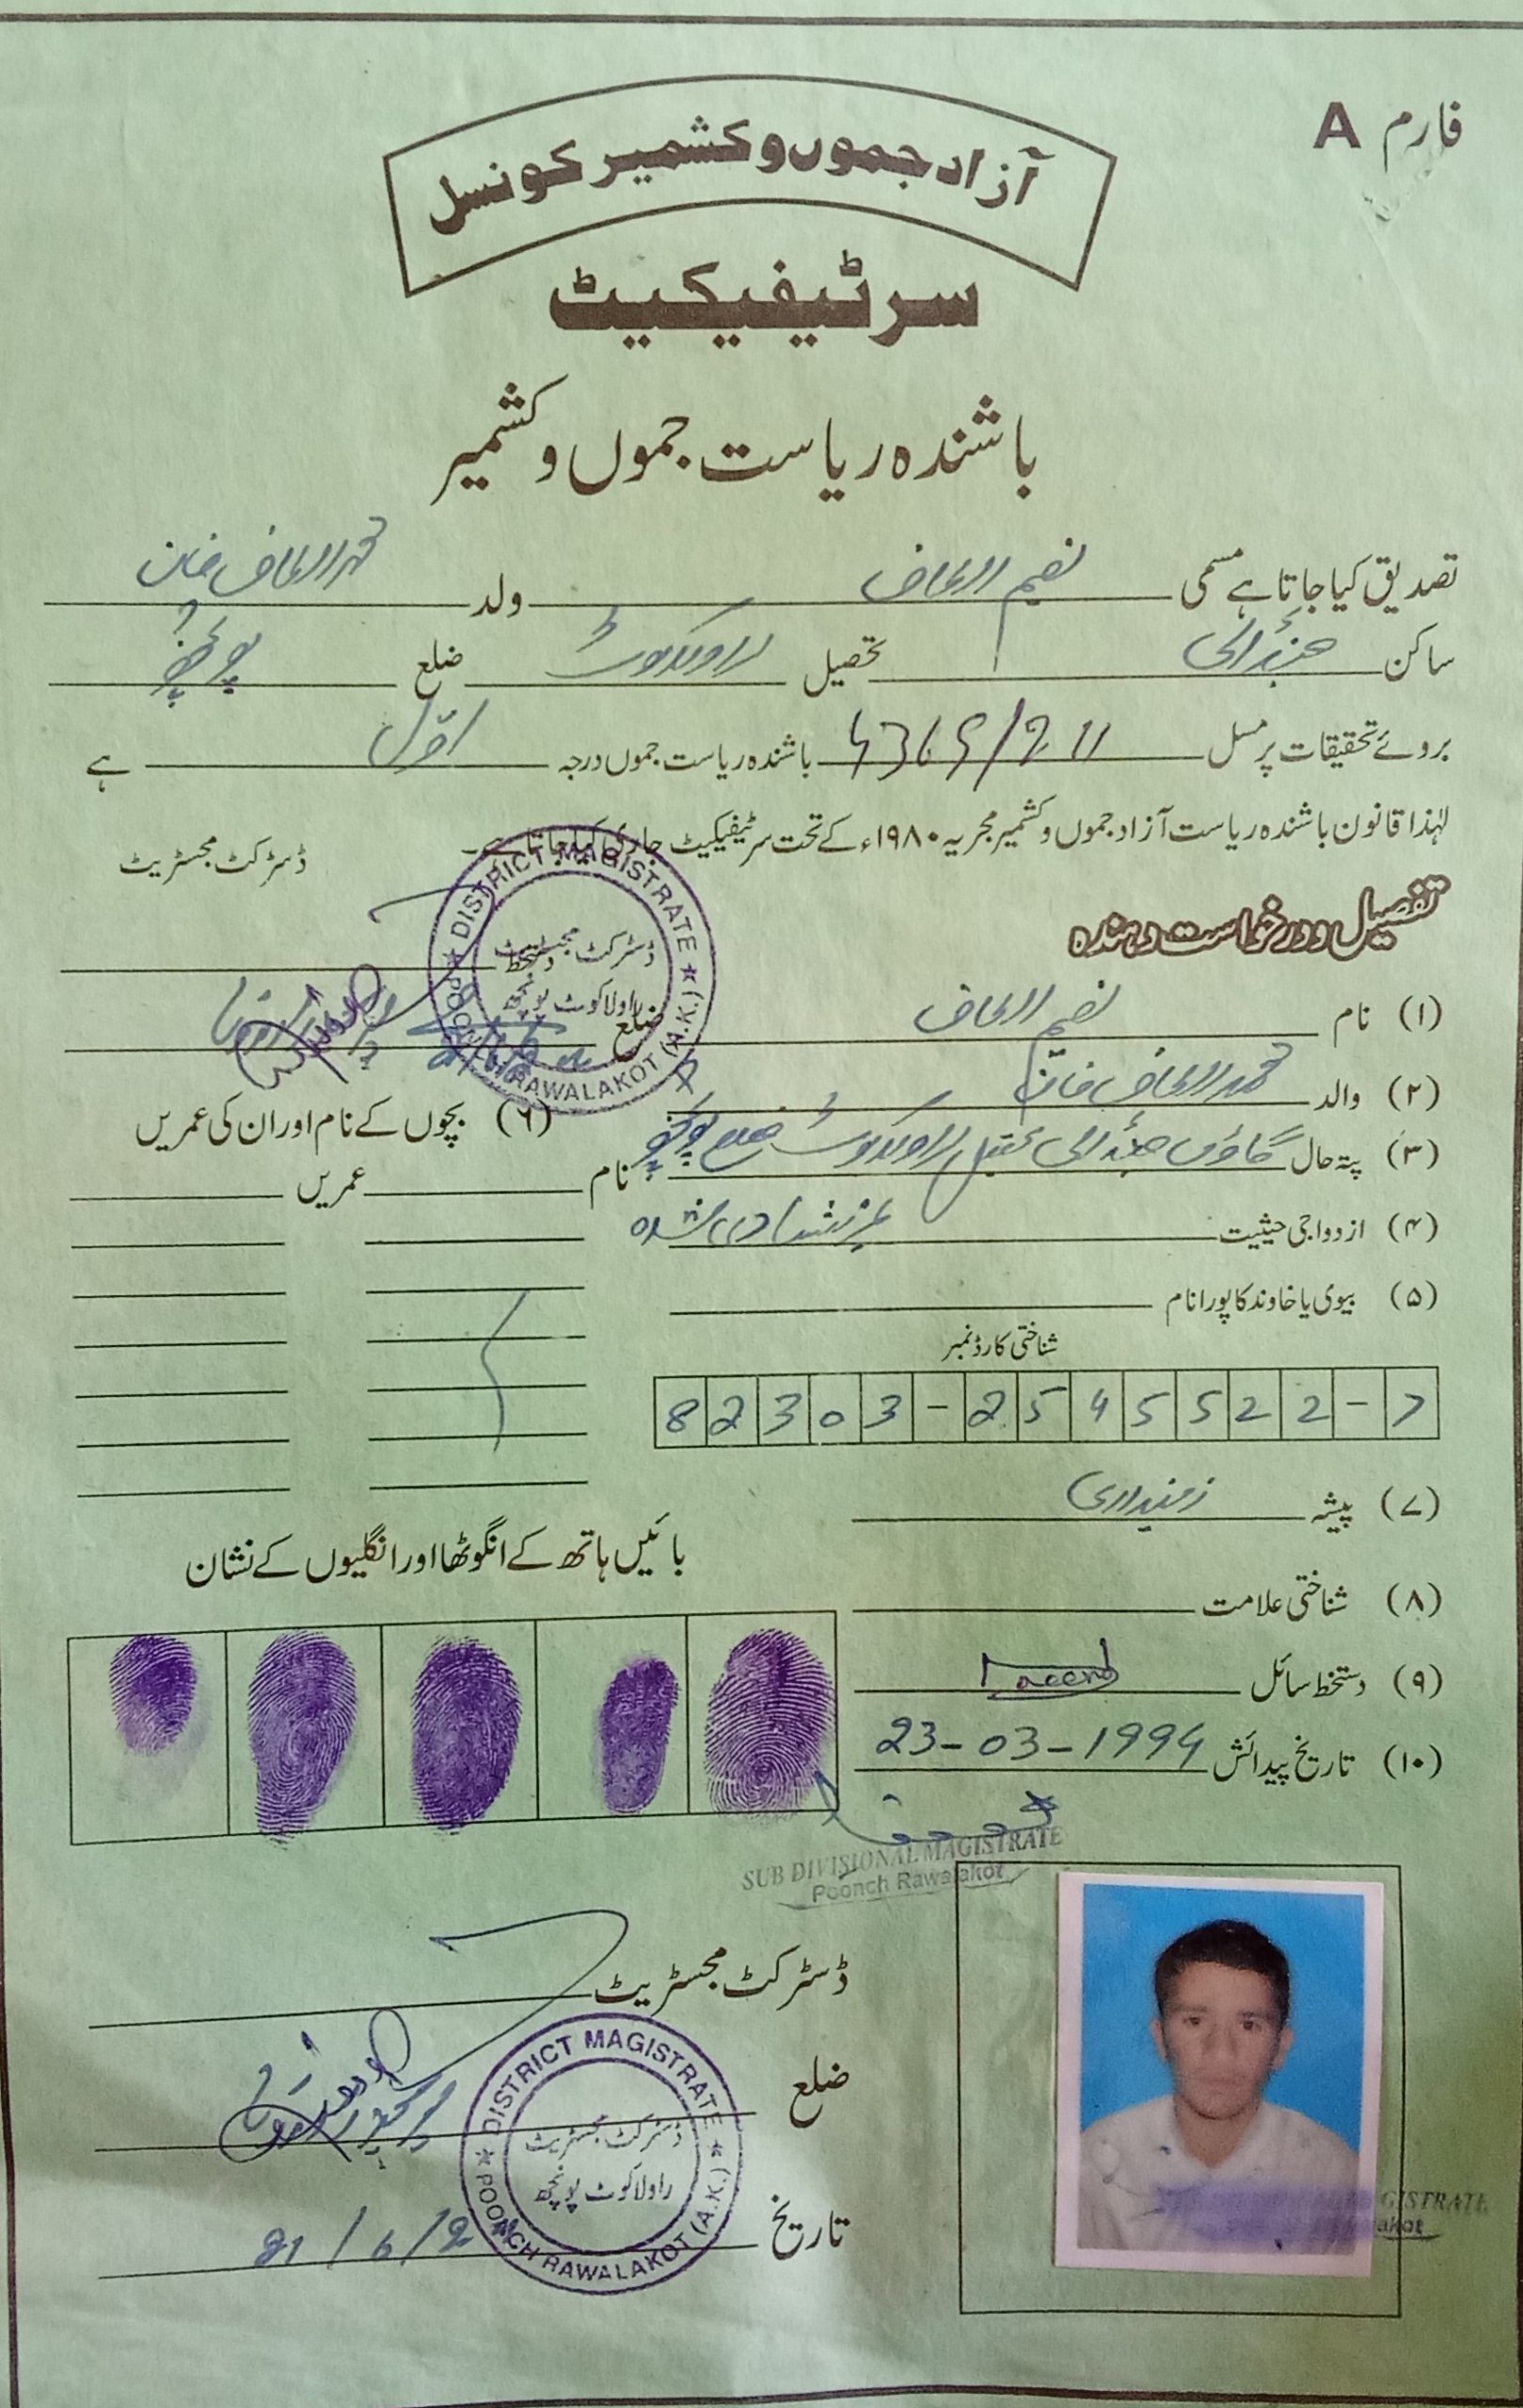 فارم A
آزاد جموں و کشمیر کونسل
سرٹیفیکیٹ
باشندہ ریاست جموں و کشمیر
تصدیق کیا جاتا ہے مسمی نعیم الطاف ولد محمد الطاف خان
ساکن تحصیل راولاکوٹ ضلع پونچھ
بروئے تحقیقات پر مسل باشندہ ریاست جموں درجہ اول ہے
لہٰذا قانون باشندہ ریاست آزاد جموں و کشمیر مجریہ ۱۹۸۰ء کے تحت سرٹیفیکیٹ جاری کیا جاتا ہے۔
ڈسٹرکٹ مجسٹریٹ
دستخط
ضلع
DISTRICT MAGISTRATE
ڈسٹرکٹ مجسٹریٹ
راولاکوٹ پونچھ
POONCH RAWALAKOT (A.K.)
تفصیل و درخواست دہندہ
(۱) نام نعیم الطاف
(۲) والد محمد الطاف خان
(۳) پتہ حال گاؤں تحصیل راولاکوٹ ضلع پونچھ
(۴) ازدواجی حیثیت غیر شادی شدہ
(۵) بیوی یا خاوند کا پورا نام
(۶) بچوں کے نام اور ان کی عمریں
نام عمریں
شناختی کارڈ نمبر
82303-2545522-7
(۷) پیشہ زمینداری
(۸) شناختی علامت
(۹) دستخط سائل
(۱۰) تاریخ پیدائش 23-03-1994
بائیں ہاتھ کے انگوٹھا اور انگلیوں کے نشان
SUB DIVISIONAL MAGISTRATE
Poonch Rawalakot
ڈسٹرکٹ مجسٹریٹ
ضلع
تاریخ
DISTRICT MAGISTRATE
ڈسٹرکٹ مجسٹریٹ
راولاکوٹ پونچھ
POONCH RAWALAKOT (A.K.)
GISTRATE
akot